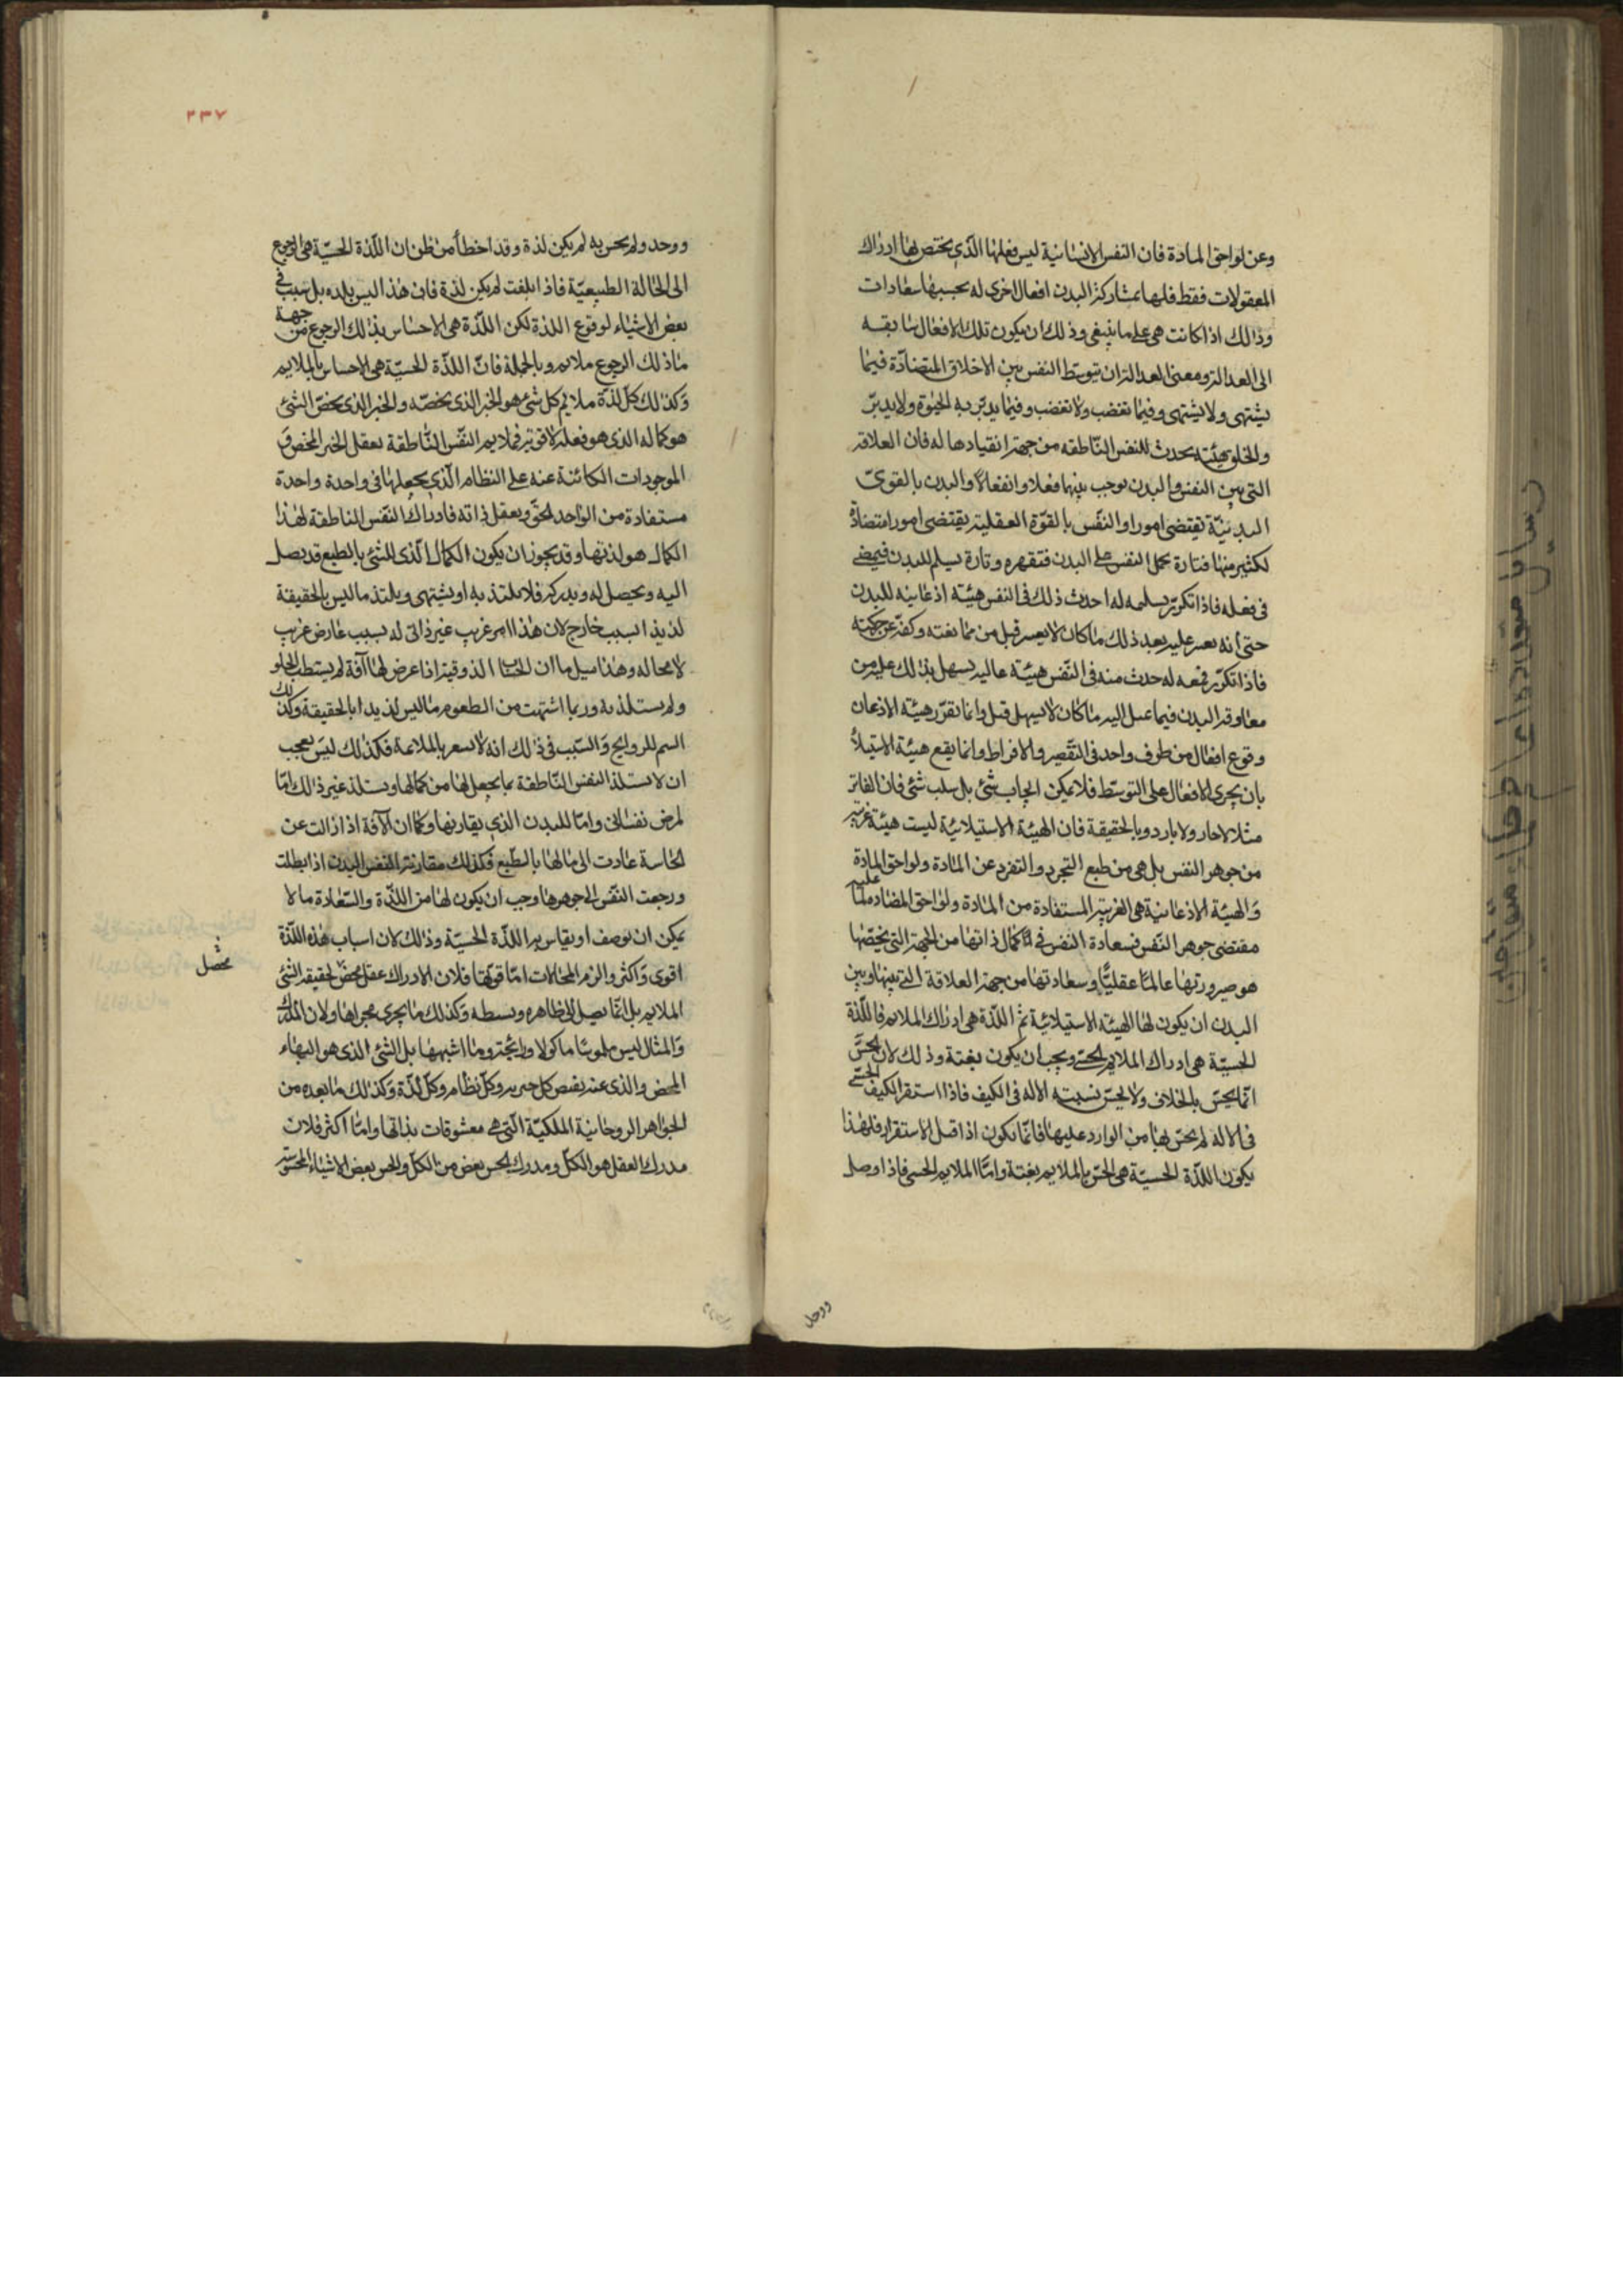 وعن لواحق المادة فان النفس الانسانية ليس فعلها الذي يختص بها ادراك
المعقولات فقط فلها بمشاركة البدن افعال اخرى له بحسبها سعادات
وذالك اذا كانت هي على ما ينبغي وذلك ان يكون تلك الافعال سابقه
الى العدالة ومعنى العدالة ان تتوسط النفس بين الاخلاق المتضادة فيما
يشتهى ولا يشتهى وفيما تغضب ولا تغضب وفيما يدبر به الحيوة ولا يدبر
والخلق هيئة يحدث للنفس الناطقه من جهة انقيادها له فان العلاقة
التي بين النفس والبدن يوجب بينهما فعلا وانفعالا والبدن بالقوى
البدنية تقتضى امورا والنفس بالقوة العقلية يقتضى امورا متضادة
لكثير منها فتارة يحمل النفس على البدن فتقهره وتارة يسلم للبدن فيمضى
فى فعله فاذا تكرر تسليمه له احدث ذلك فى النفس هيئة اذعانيه للبدن
حتى انه يعسر عليه بعد ذلك ما كان لا يعسر قبل من ممانعته وكفه عن حركته
فاذا تكرر قمعه له حدث منه فى النفس هيئة عاليه يسهل بذلك عليه من
معاوقة البدن فيما عيل اليه ما كان لا يسهل قبل وانما تقرر هيئة الاذعان
وقوع افعال من طرف واحد فى التقصير والافراط وانما يقع هيئة الاستيلا
بان يجرى الافعال على التوسط فلا يمكن ايجاب شئ بل سلب شئ فان الفاتر
مثلا لا حار ولا بارد وبالحقيقة فان الهيئة الاستيلائية ليست هيئة غريبة
من جوهر النفس بل هى من طبع التجرد والتفرد عن المادة ولواحق المادة
والهيئة الاذعانية هى الغريبة المستفادة من المادة ولواحق المضادة لما عليه
مقتضى جوهر النفس فسعادة النفس فى كمال ذاتها من الجهة التى يخصها
هو صيرورتها عالما عقليا وسعادتها من جهة العلاقة التي بينها وبين
البدن ان يكون لها الهيئة الاستيلائية ثم اللذة هى ادراك الملايم فاللذة
الحسية هى ادراك الملايم الحسى ويجب ان يكون بغتة وذلك لان الحس
انما يحس بالخلاف ولا يحس نسبته الاله فى الكيف فاذا استقر الكيف الحسى
فى الاله لم يحس بها من الوارد عليها فانما يكون اذا قبل الاستقرار فلهذا
يكون اللذة الحسية هى الحس بالملايم بغتة واما الملايم الحسى فاذا وصل
ووصل
٢٣٧
ووجد ولم يحس به لم يكن لذة وقد اخطأ من ظن ان اللذة الحسية هى الرجوع
الى الحالة الطبيعية فاذا ابلغت لم يكن لذة فان هذا ليس بلده بل سبب فى
بعض الاشياء لوقوع اللذة لكن اللذة هى الاحساس بذلك الرجوع من جهة
ما ذلك الرجوع ملايم وبالجملة فان اللذة الحسية هى الاحساس بالملايم
وكذلك كل لذة ملايم كل شئ هو الخير الذى يخصه والخير الذى يخص الشئ
هو كماله الذى هو فعله لا قوته فملايم النفس الناطقة تعقل الخير المحض و
الموجودات الكائنة عنه على النظام الذي يجعلها فى واحدة واحدة
مستفادة من الواحد الحق وتعقل ذاته فادراك النفس الناطقة لهذا
الكمال هو لذتها وقد يجوز ان يكون الكمال الذى للشئ بالطبع قد يصل
اليه ويحصل له ويدركه فلا يلتذ به او يشتهى ويلتذ ما ليس بالحقيقة
لذيذا لسبب خارج لان هذا امر غريب غير ذاتى له بسبب عارض غريب
لا محاله وهذا سبيل ما ان الحسا الذوقية اذا عرض لها آفة لم يستطب الحلو
ولم يستلذ به وربما اشتهت من الطعوم ما ليس لذيدا بالحقيقة وكذلك
الشم للروايح والسبب فى ذلك انه لا يشعر بالملائمة فكذلك ليس يعجب
ان لا يستلذ النفس الناطقة بما يحصل لها من كمالها ويستلذ غير ذالك اما
لمرض نفسانى واما للبدن الذي يقارنها وكما ان الآفة اذا زالت عن
الحاسة عادت الى مالها بالطبع فكذلك مقارنة النفس البدن اذا بطلت
ورجعت النفس الى جوهرها وجب ان يكون لها من اللذة والسعادة ما لا
يمكن ان يوصف او يقاس به اللذة الحسية وذالك لان اسباب هذه اللذة
اقوى واكثر والزم المحالات اما قوتها فلان الادراك عقل محض لحقيقة الشئ
محصل
الملايم بل انما يصل الى ظاهره وبسطه وكذلك ما يجرى مجراها ولان المدرك
والمثال ليس ملموسا ماكولا ورايحة وما اشبهها بل الشئ الذى هو البهاء
المحض والذى عنه يفيض كل خير وكل نظام وكل لذة وكذلك ما بعده من
الجواهر الروحانية الملكية التى هى معشوقات بذاتها واما اكثر فلان
مدرك العقل هو الكل ومدرك الحس بعض من الكل والحس بعض الاشياء المحسوسة